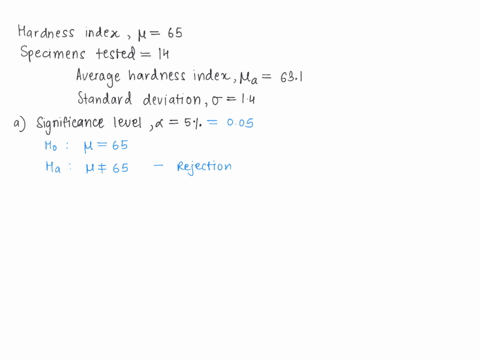 Hardness index, μ = 65
Specimens tested = 14
Average hardness index, μa = 63.1
Standard deviation, σ = 1.4
a) Significance level, α = 5% = 0.05
H₀ : μ = 65
Ha : μ ≠ 65 — Rejection